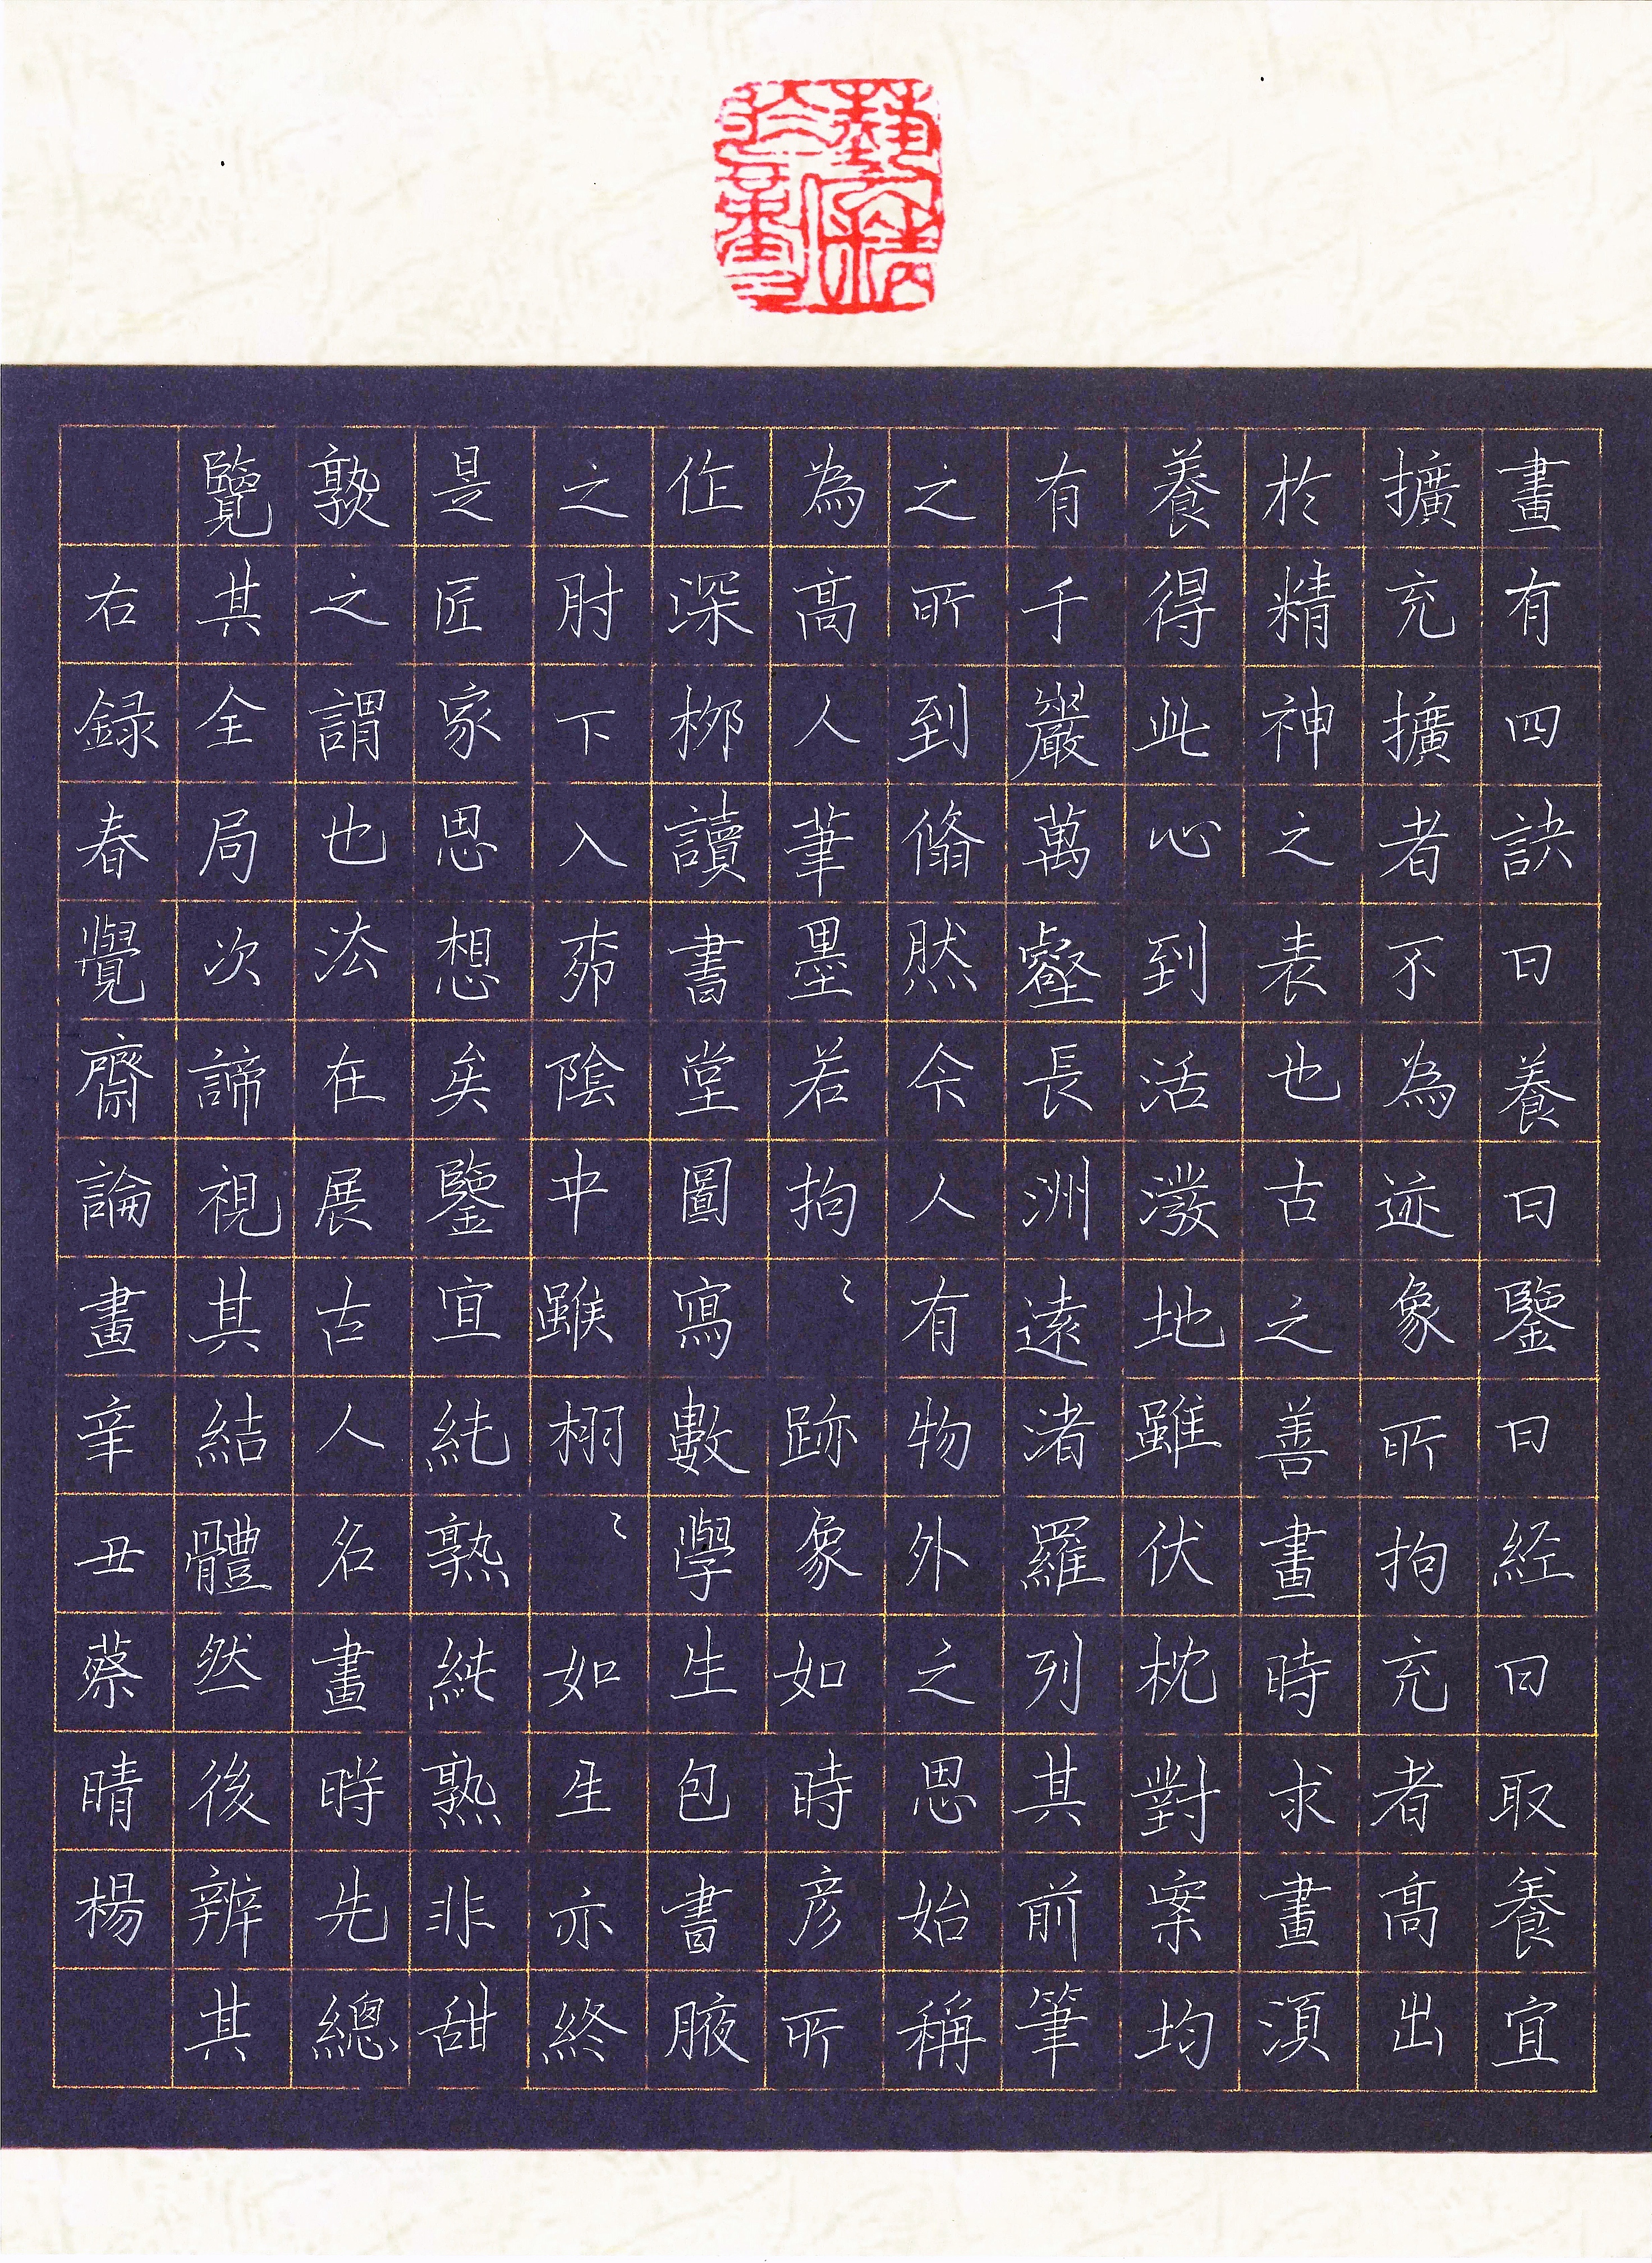 畫有四訣曰養曰鑒曰経曰取養宜
擴充擴者不為迹象所拘充者高出
於精神之表也古之善畫時求畫湏
養得此心到活潑地雖伏枕對案均
有千巖萬壑長洲遠渚羅列其前筆
之所到翛然令人有物外之思始稱
為高人筆墨若拘〻跡象如時彦所
作深柳讀書堂圖寫數學生包書腋
之肘下入茆陰中雖栩〻如生亦終
是匠家思想矣鑒宜純熟純熟非甜
孰之謂也法在展古人名畫時先總
覽其全局次諦視其結體然後辨其
右録春覺齋論畫辛丑蔡晴楊